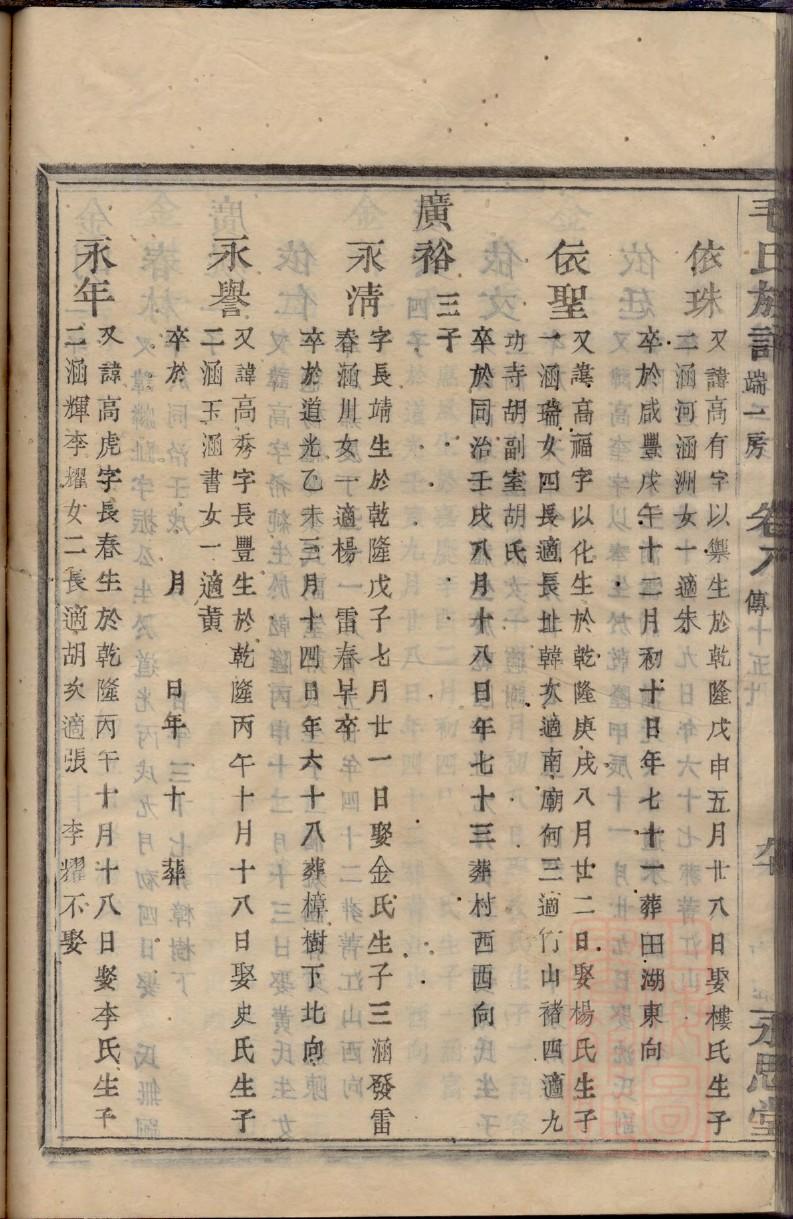 毛氏族譜 端一房 卷八 傳 永思堂
依珠
又諱高有字以禦生於乾隆戊申五月廿八日娶樓氏生子
二涵河涵洲女十適朱
卒於咸豐戊午十二月初十日年七十一葬田湖東向
依聖
又諱高福字以化生於乾隆庚戌八月廿二日娶楊氏生子
一涵瑞女四長適長址韓次適南廟何三適竹山褚四適九
功寺胡副室胡氏
卒於同治壬戌八月十八日年七十三葬村西酉向
廣裕 三子
永清
字長靖生於乾隆戊子七月廿一日娶金氏生子三涵發雷
春涵川女一適楊一雷春早卒
卒於道光乙未三月十四日年六十八葬樟樹下北向
永譽
又諱高秀字長豐生於乾隆丙午十月十八日娶史氏生子
二涵玉涵書女一適黃
卒於 月 日年 十 葬
永年
又諱高虎字長春生於乾隆丙午十月十八日娶李氏生子
二涵輝李耀女二長適胡次適張 李耀不娶